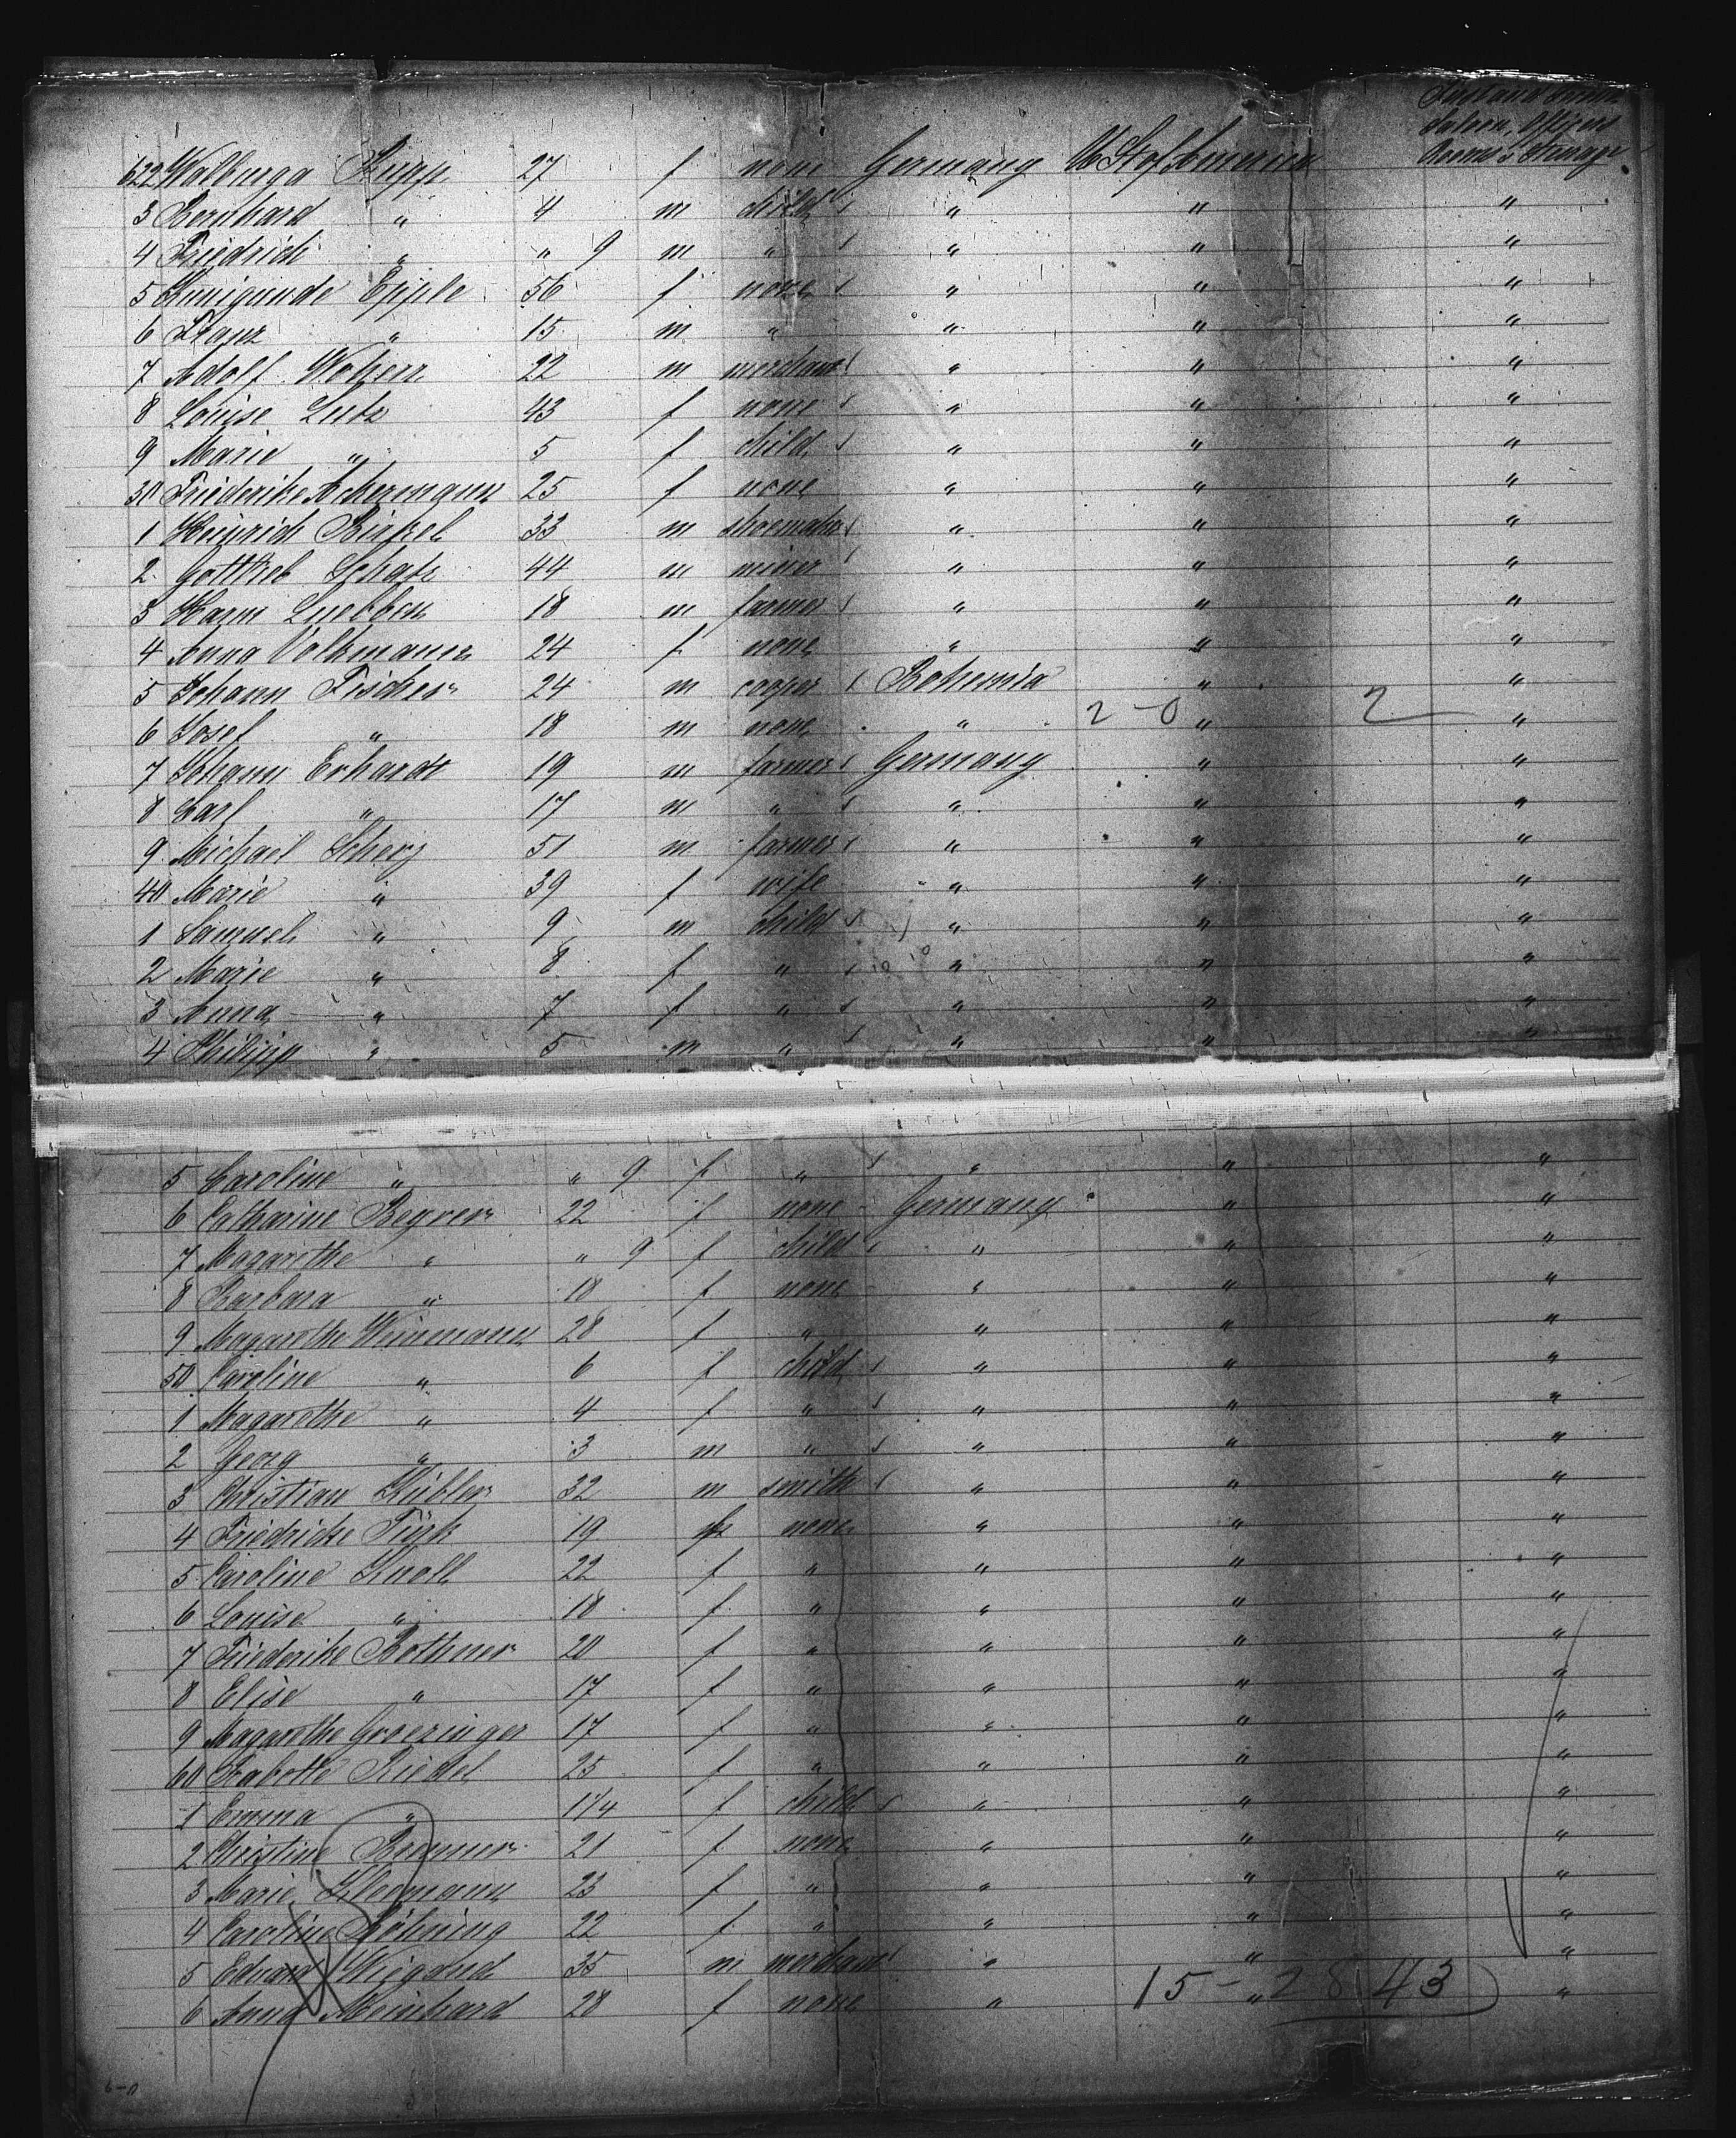 Saloon, Officers
Rooms & Steerage
622 Walburga Rupp 27 f none Germany U St of America
3 Bernhard " 4 m child " " "
4 Friedrich " " 9 m " " " "
5 Kunigunde Epple 56 f none " " "
6 Franz " 15 m " " " "
7 Adolf 22 m merchant " " "
8 Louise Lutz 43 f none " " "
9 Marie " 5 f child " " "
30 Friederike Ackermann 25 f none " " "
1 Heinrich 33 m shoemaker " " "
2 Gottlieb Schatz 44 m miner " " "
3 Harm Luebben 18 m farmer " " "
4 Anna Volkmann 24 f none " " "
5 Johann Fischer 24 m cooper Bohemia " "
6 Josef " 18 m none " 2-0 " 2 "
7 Johann Erhardt 19 m farmer Germany " "
8 Carl " 17 m " " " "
9 Michael Scherj 51 m farmer " " "
40 Marie " 39 f wife " " "
1 Samuel " 9 m child " " "
2 Marie " 8 f " " " "
3 Anna " 7 f " " " "
4 Philipp " 5 m " " " "
5 Caroline " " 9 f " " " "
6 Catharine Begrer 22 f none Germany " "
7 Magarethe " " 9 f child " " "
8 Barbara " 18 f none " " "
9 Magarethe Weinmann 28 f " " " "
50 Caroline " 6 f child " " "
1 Magarethe " 4 f " " " "
2 Georg " 3 m " " " "
3 Christian Kübler 32 m smith " " "
4 Friedricke Türk 19 f none " " "
5 Caroline Knoll 22 f " " " "
6 Louise " 18 f " " " "
7 Friederike Bothner 20 f " " " "
8 Elise " 17 f " " " "
9 Magarethe Groezinger 17 f " " " "
60 Babette Riedel 25 f " " " "
1 Emma " 1 1/4 f child " " "
2 Christine 21 f none " " "
3 Marie Kleemann 23 f " " " "
4 Caroline Böhning 22 f " " " "
5 Eduard Wigand 35 m merchant " " "
6 Anna Meinhard 28 f none " 15 - " 28 43 "
6-0